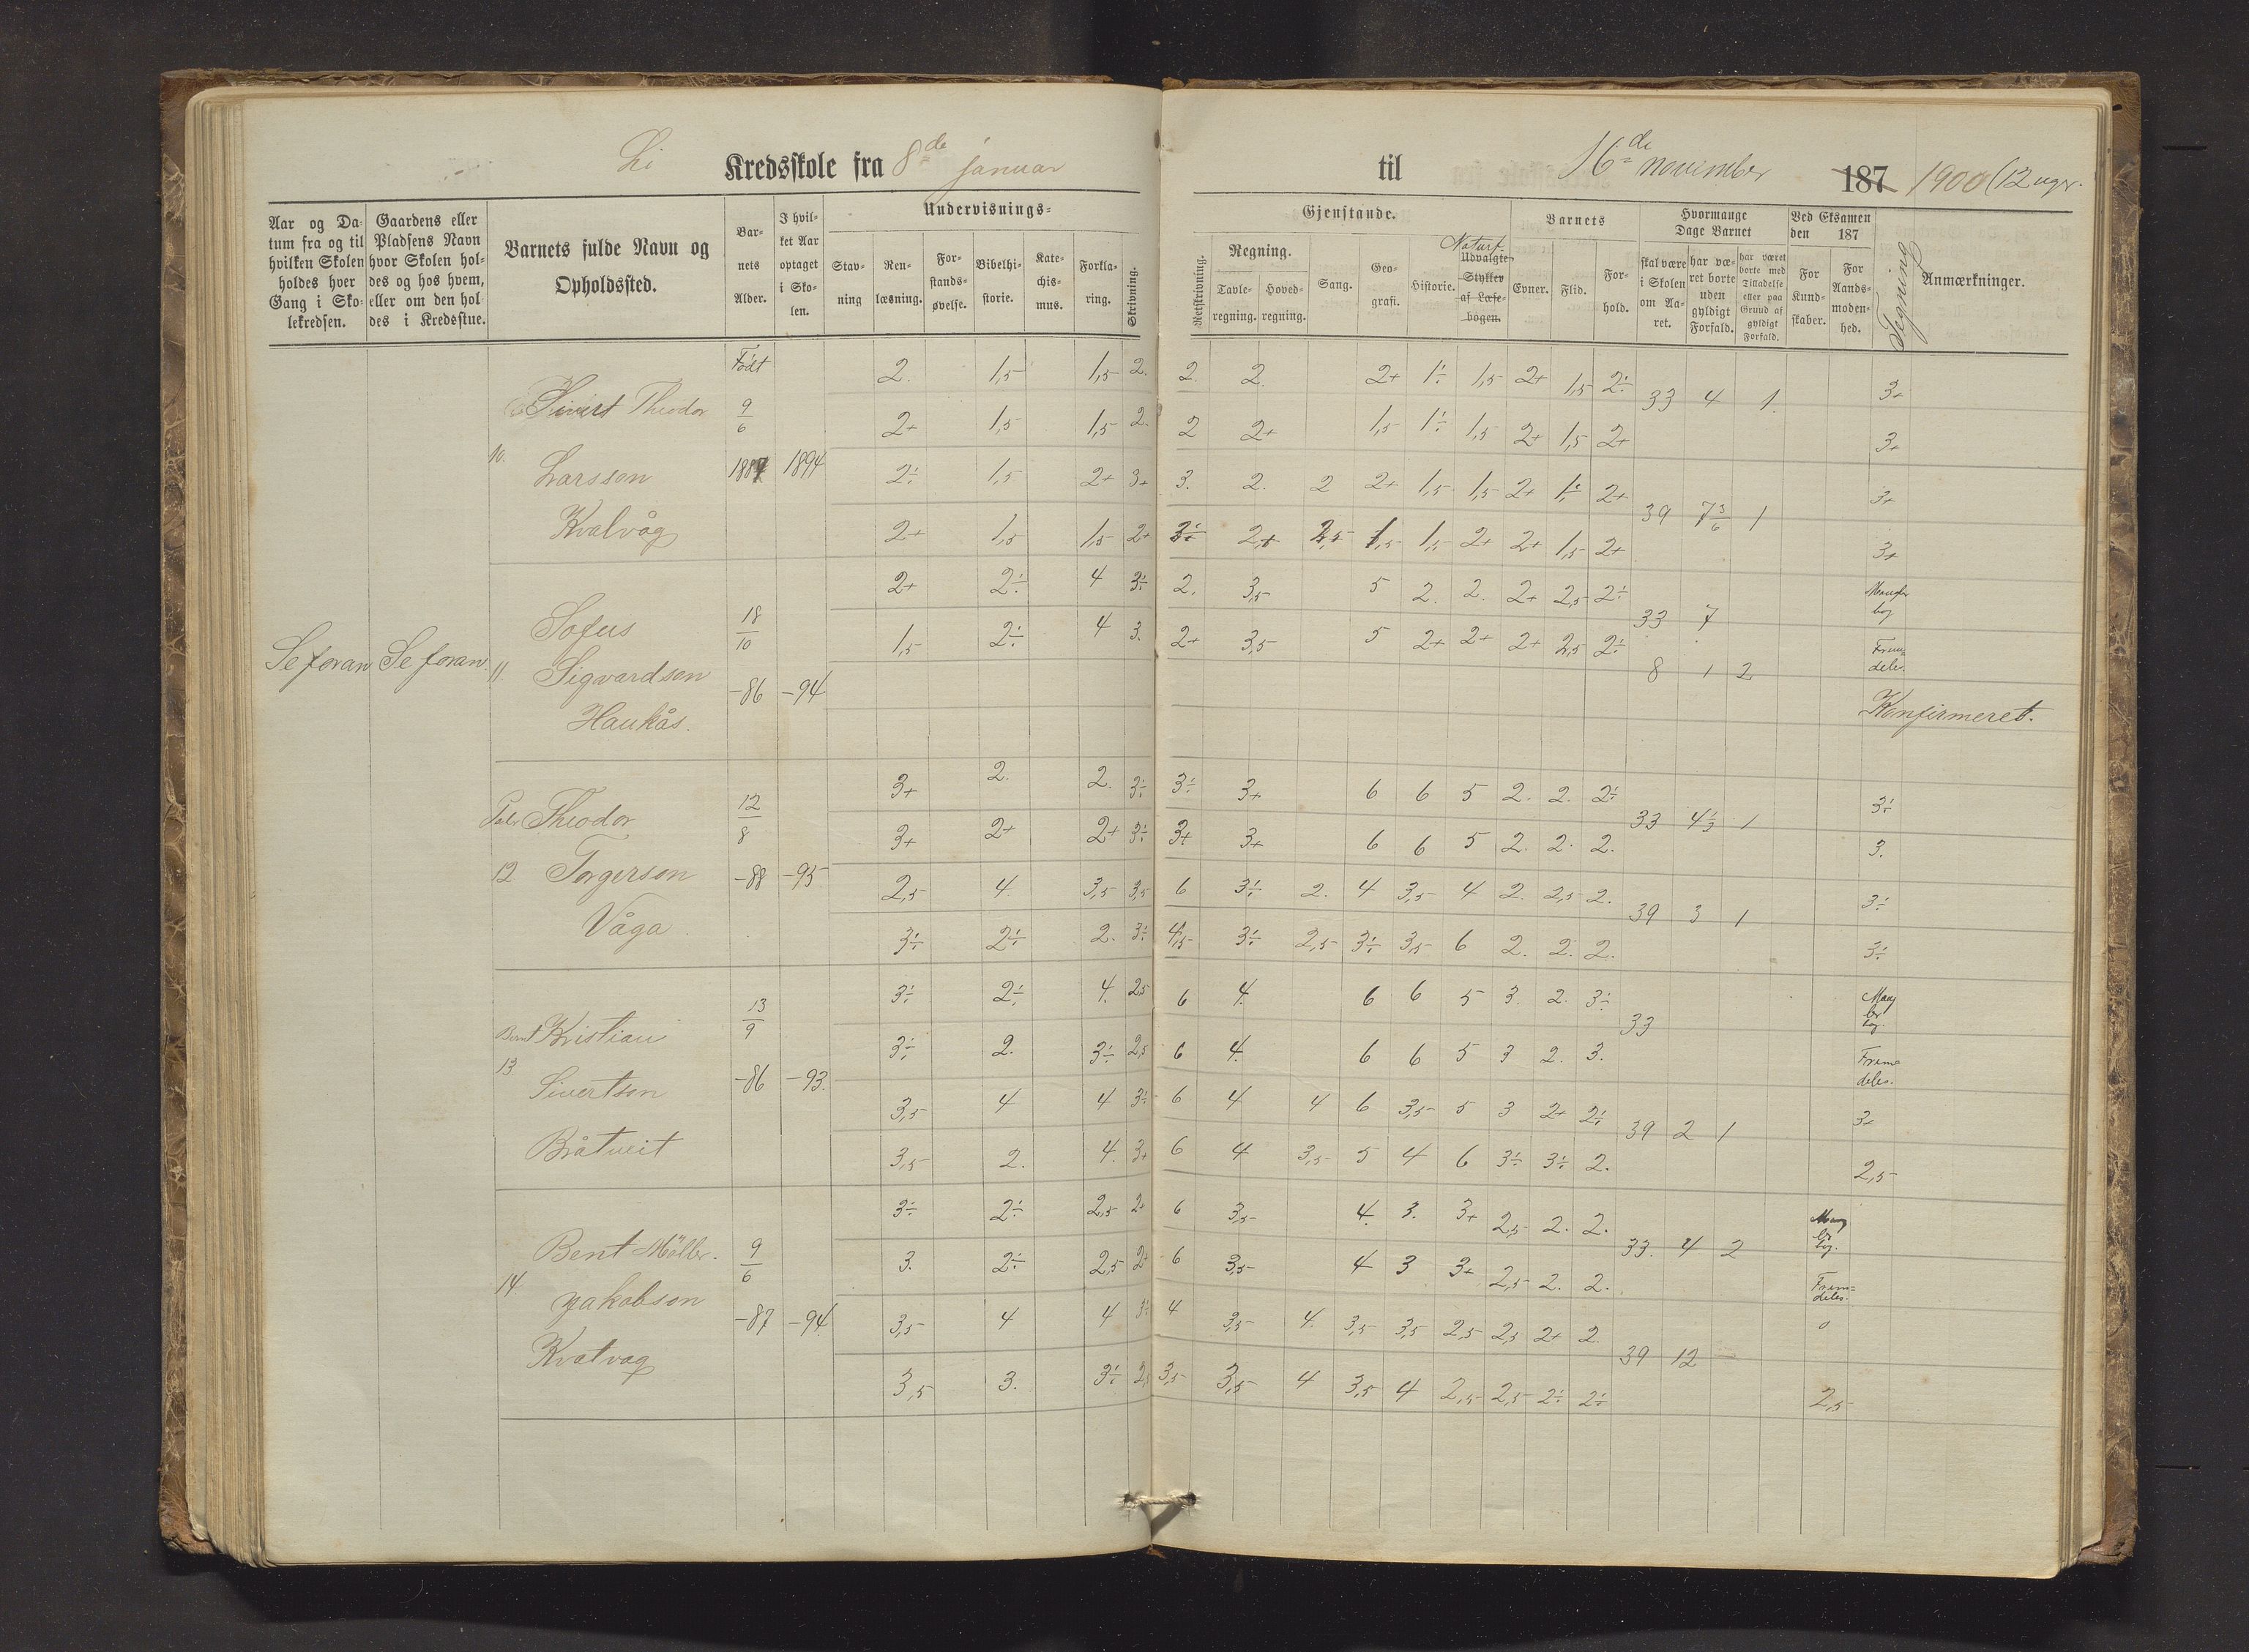 Li Kredsskole fra 8de januar til 16de november 187 1900 (12 uger.
Aar og Da-
tum fra og til
hvilken Skolen
holdes hver
Gang i Sko-
lekredsen.
Gaardens eller
Pladsens Navn
hvor Skolen hol-
des og hos hvem,
eller om den hol-
des i Kredsstue.
Barnets fulde Navn og
Opholdssted.
Bar-
nets
Alder.
I hvil-
ket Aar
optaget
i Sko-
len.
Undervisnings-
Stav-
ning
Ren-
læsning.
For-
stands-
øvelse.
Bibelhi-
storie.
Kate-
chis-
mus.
Forkla-
ring.
Skrivning.
Gjenstande.
Retskrivning.
Regning.
Tavle-
regning.
Hoved-
regning.
Sang.
Geo-
grafi.
Historie.
Naturf.
Udvalgte
Stykker
af Læse-
bogen.
Barnets
Evner.
Flid.
For-
hold.
Hvormange
Dage Barnet
skal være
i Skolen
om Aa-
ret.
har væ-
ret borte
uden
gyldigt
Forfald.
har været
borte med
Tilladelse
eller paa
Grund af
gyldigt
Forfald.
Ved Eksamen
den 187
For
Kund-
skaber.
For
Aands-
moden-
hed.
Tegning
Anmærkninger.
Født
2. 1,5 1,5 2. 2. 2. 2+ 1÷ 1,5 2+ 1,5 2÷ 33 4 1. 3+
Sivert Theodor 9/6
2+ 1,5 1,5 2. 2 2+ 1,5 1÷ 1,5 2+ 1,5 2+ 3+
10. Larsson 1887 1894
2÷ 1,5 2+ 3+ 3. 2. 2 2+ 1,5 1,5 2+ 1÷ 2+ 39 7 3/6 1 3+
Kvalvåg
2+ 1,5 1,5 2+ 3÷ 2+ 2,5 1,5 1,5 2+ 2+ 1,5 2+ 3+
2+ 2÷ 4 3÷ 2. 3,5 5 2. 2. 2+ 2,5 2÷ 33 7
bog
Sofus 18/10
1,5 2÷ 4 3. 2+ 3,5 5 2+ 2+ 2+ 2,5 2÷ 8 1 2 Frem=
deles.
Se foran Se foran. 11. Sigvardsen -86 -94
Haukås.
Konfirmeret.
3+ 2. 2. 3÷ 3÷ 3+ 6 6 5 2. 2. 2÷ 33 4 1/3 1 3÷
Theodor 12/8
3+ 2+ 2+ 3÷ 3+ 3+ 6 6 5 2. 2. 2. 3.
12 Torgerson -88 -95
2,5 4. 3,5 3,5 6 3÷ 2. 4 3,5 4 2. 2,5 2. 39 3 1 3÷
Våga.
3÷ 2÷ 2. 3÷ 4,5 3÷ 2,5 3÷ 3,5 6 2. 2. 2. 3÷
3÷ 2÷ 4. 2,5 6 4. 6 6 5 3. 2. 3÷ 33 Mang
ler
bog.
Bernt Kristian 13/9
3÷ 2. 3÷ 2,5 6 4. 6 6 5 3 2. 3. Frem=
deles.
13. Sivertson -86 -93.
3,5 4 4 3÷ 6 4 4 6 3,5 5 3 2+ 2÷ 39 2 1 3+
Bråtveit
3,5 2. 4. 3+ 6 4 3,5 5 4 6 3÷ 3÷ 2. 2,5
3÷ 2÷ 2,5 2+ 6 3,5 4. 3. 3+ 2,5 2. 2. 33. 4 2 Mang
ler
bog.
Bent Møller. 9/6
3. 2÷ 2,5 2+ 6 3,5 4 3 3+ 2,5 2. 2. Frem=
deles.
14 Jakobson -87 -94.
3,5 4 4 3÷ 4 3,5 4. 3,5 3,5 2,5 2,5 2+ 2. 39 12 — 0
Kvalvag
3,5 3. 3÷ 2,5 3,5 3,5 4 3,5 4 2,5 2,5 2÷ 2÷ 2,5